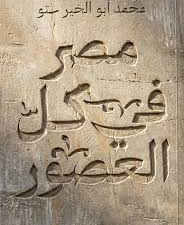 محمد أبو الخير سنو
مصر
في كلّ
العصور